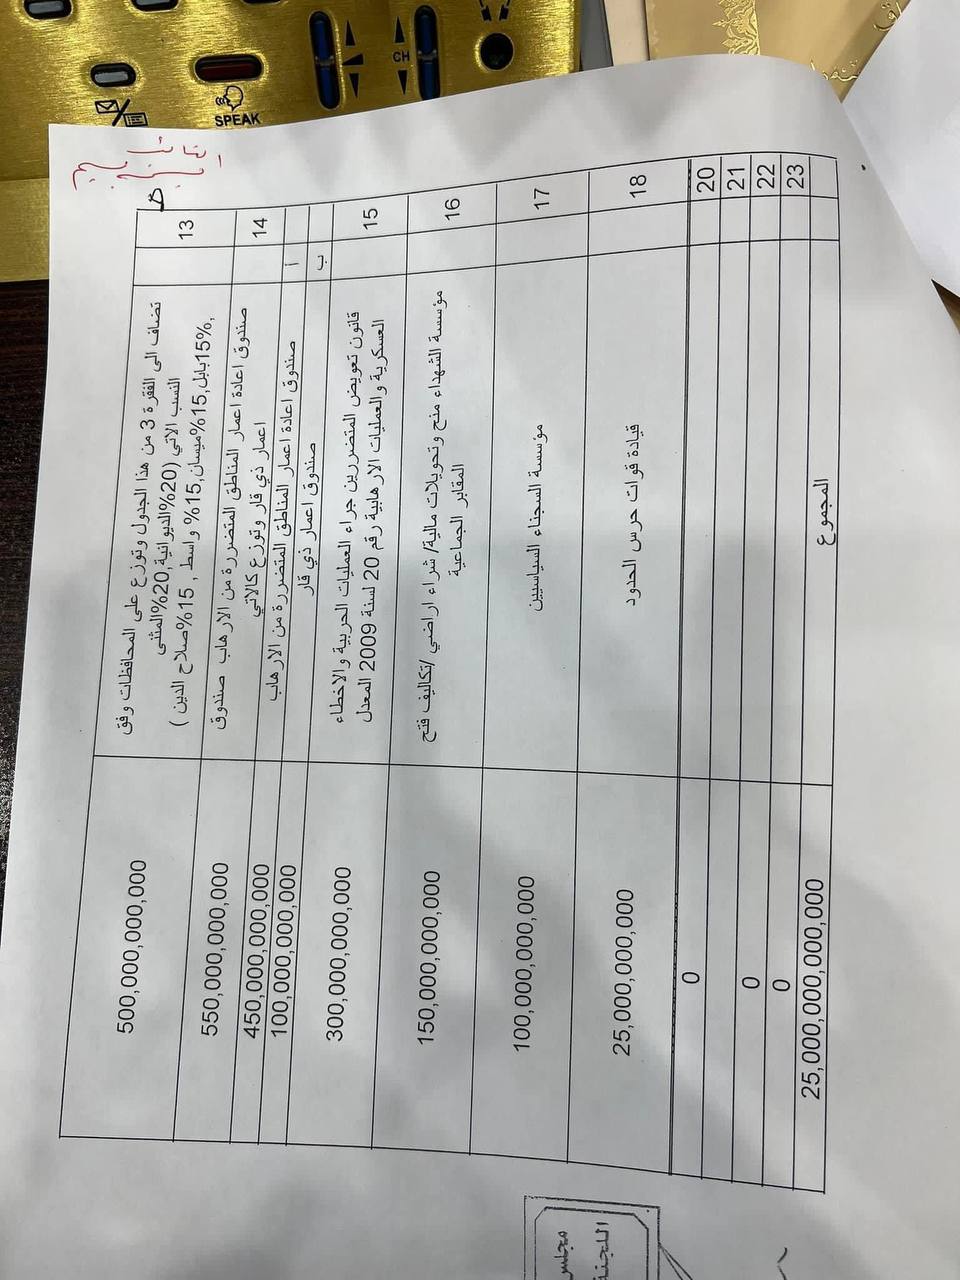 SPEAK
CH
13
تضاف الى الفقرة 3 من هذا الجدول وتوزع على المحافظات وفق
النسب الاتي (20%الديوانية,20%المثنى
,15%بابل,15%ميسان,15% واسط , 15%صلاح الدين )
500,000,000,000
14
صندوق اعادة اعمار المناطق المتضررة من الارهاب صندوق
اعمار ذي قار وتوزع كالاتي
550,000,000,000
أ
صندوق اعادة اعمار المناطق المتضررة من الارهاب
450,000,000,000
ب
صندوق اعمار ذي قار
100,000,000,000
15
قانون تعويض المتضررين جراء العمليات الحربية والاخطاء
العسكرية والعمليات الارهابية رقم 20 لسنة 2009 المعدل
300,000,000,000
16
مؤسسة الشهداء منح وتحويلات مالية/ شراء اراضي /تكاليف فتح
المقابر الجماعية
150,000,000,000
17
مؤسسة السجناء السياسيين
100,000,000,000
18
قيادة قوات حرس الحدود
25,000,000,000
20
0
21
22
0
23
0
المجموع
25,000,000,000,000
مجلس
اللجنة